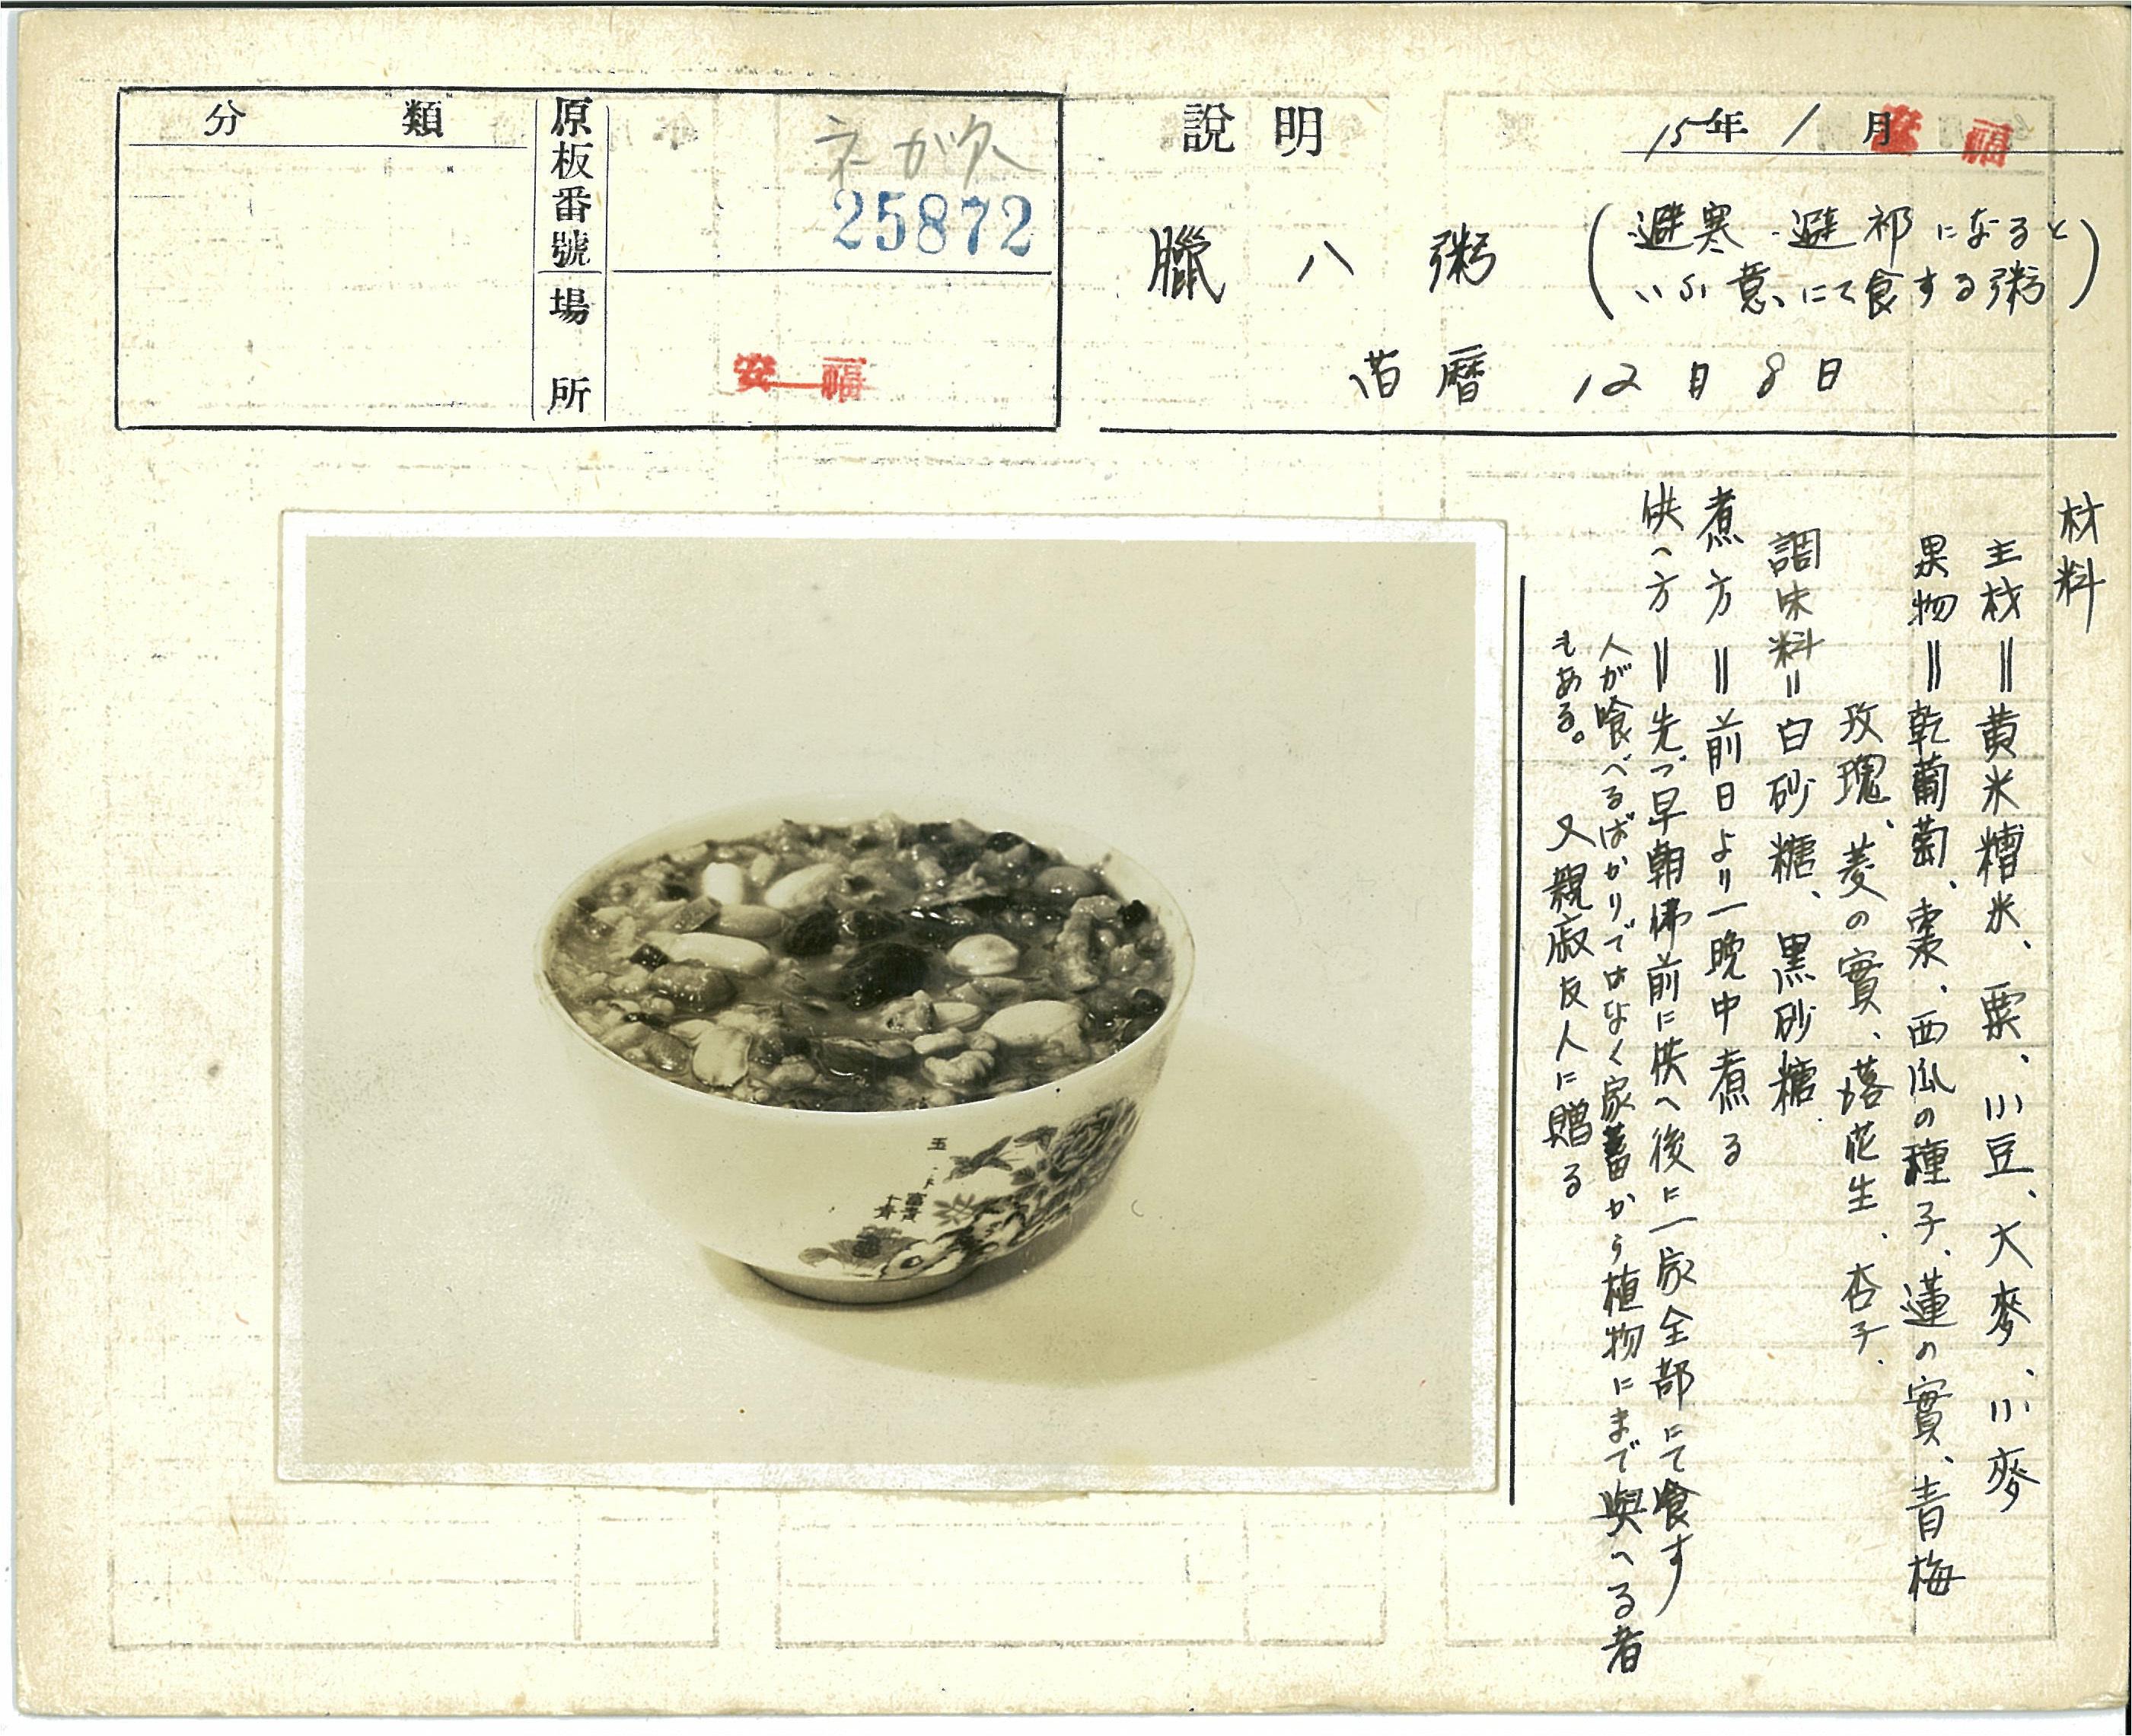 分類
原板番號
ネガ欠
25872
場所
安福
説明
15年1月
安福
臘八粥
(避寒・避邪になると
いふ意にて食する粥)
旧暦 12月8日
材料
主材＝黄米糟米、粟、小豆、大麥、小麥
果物＝乾葡萄、棗、西瓜の種子、蓮の實、青梅
玫瑰、菱の實、落花生、杏子、
調味料＝白砂糖、黒砂糖
煮方＝前日より一晩中煮る
供へ方＝先づ早朝佛前に供へ後に一家全部にて喰す
人が喰べるばかりではなく家蓄から植物にまで與へる者
もある。 又親戚友人に贈る
玉
富貴